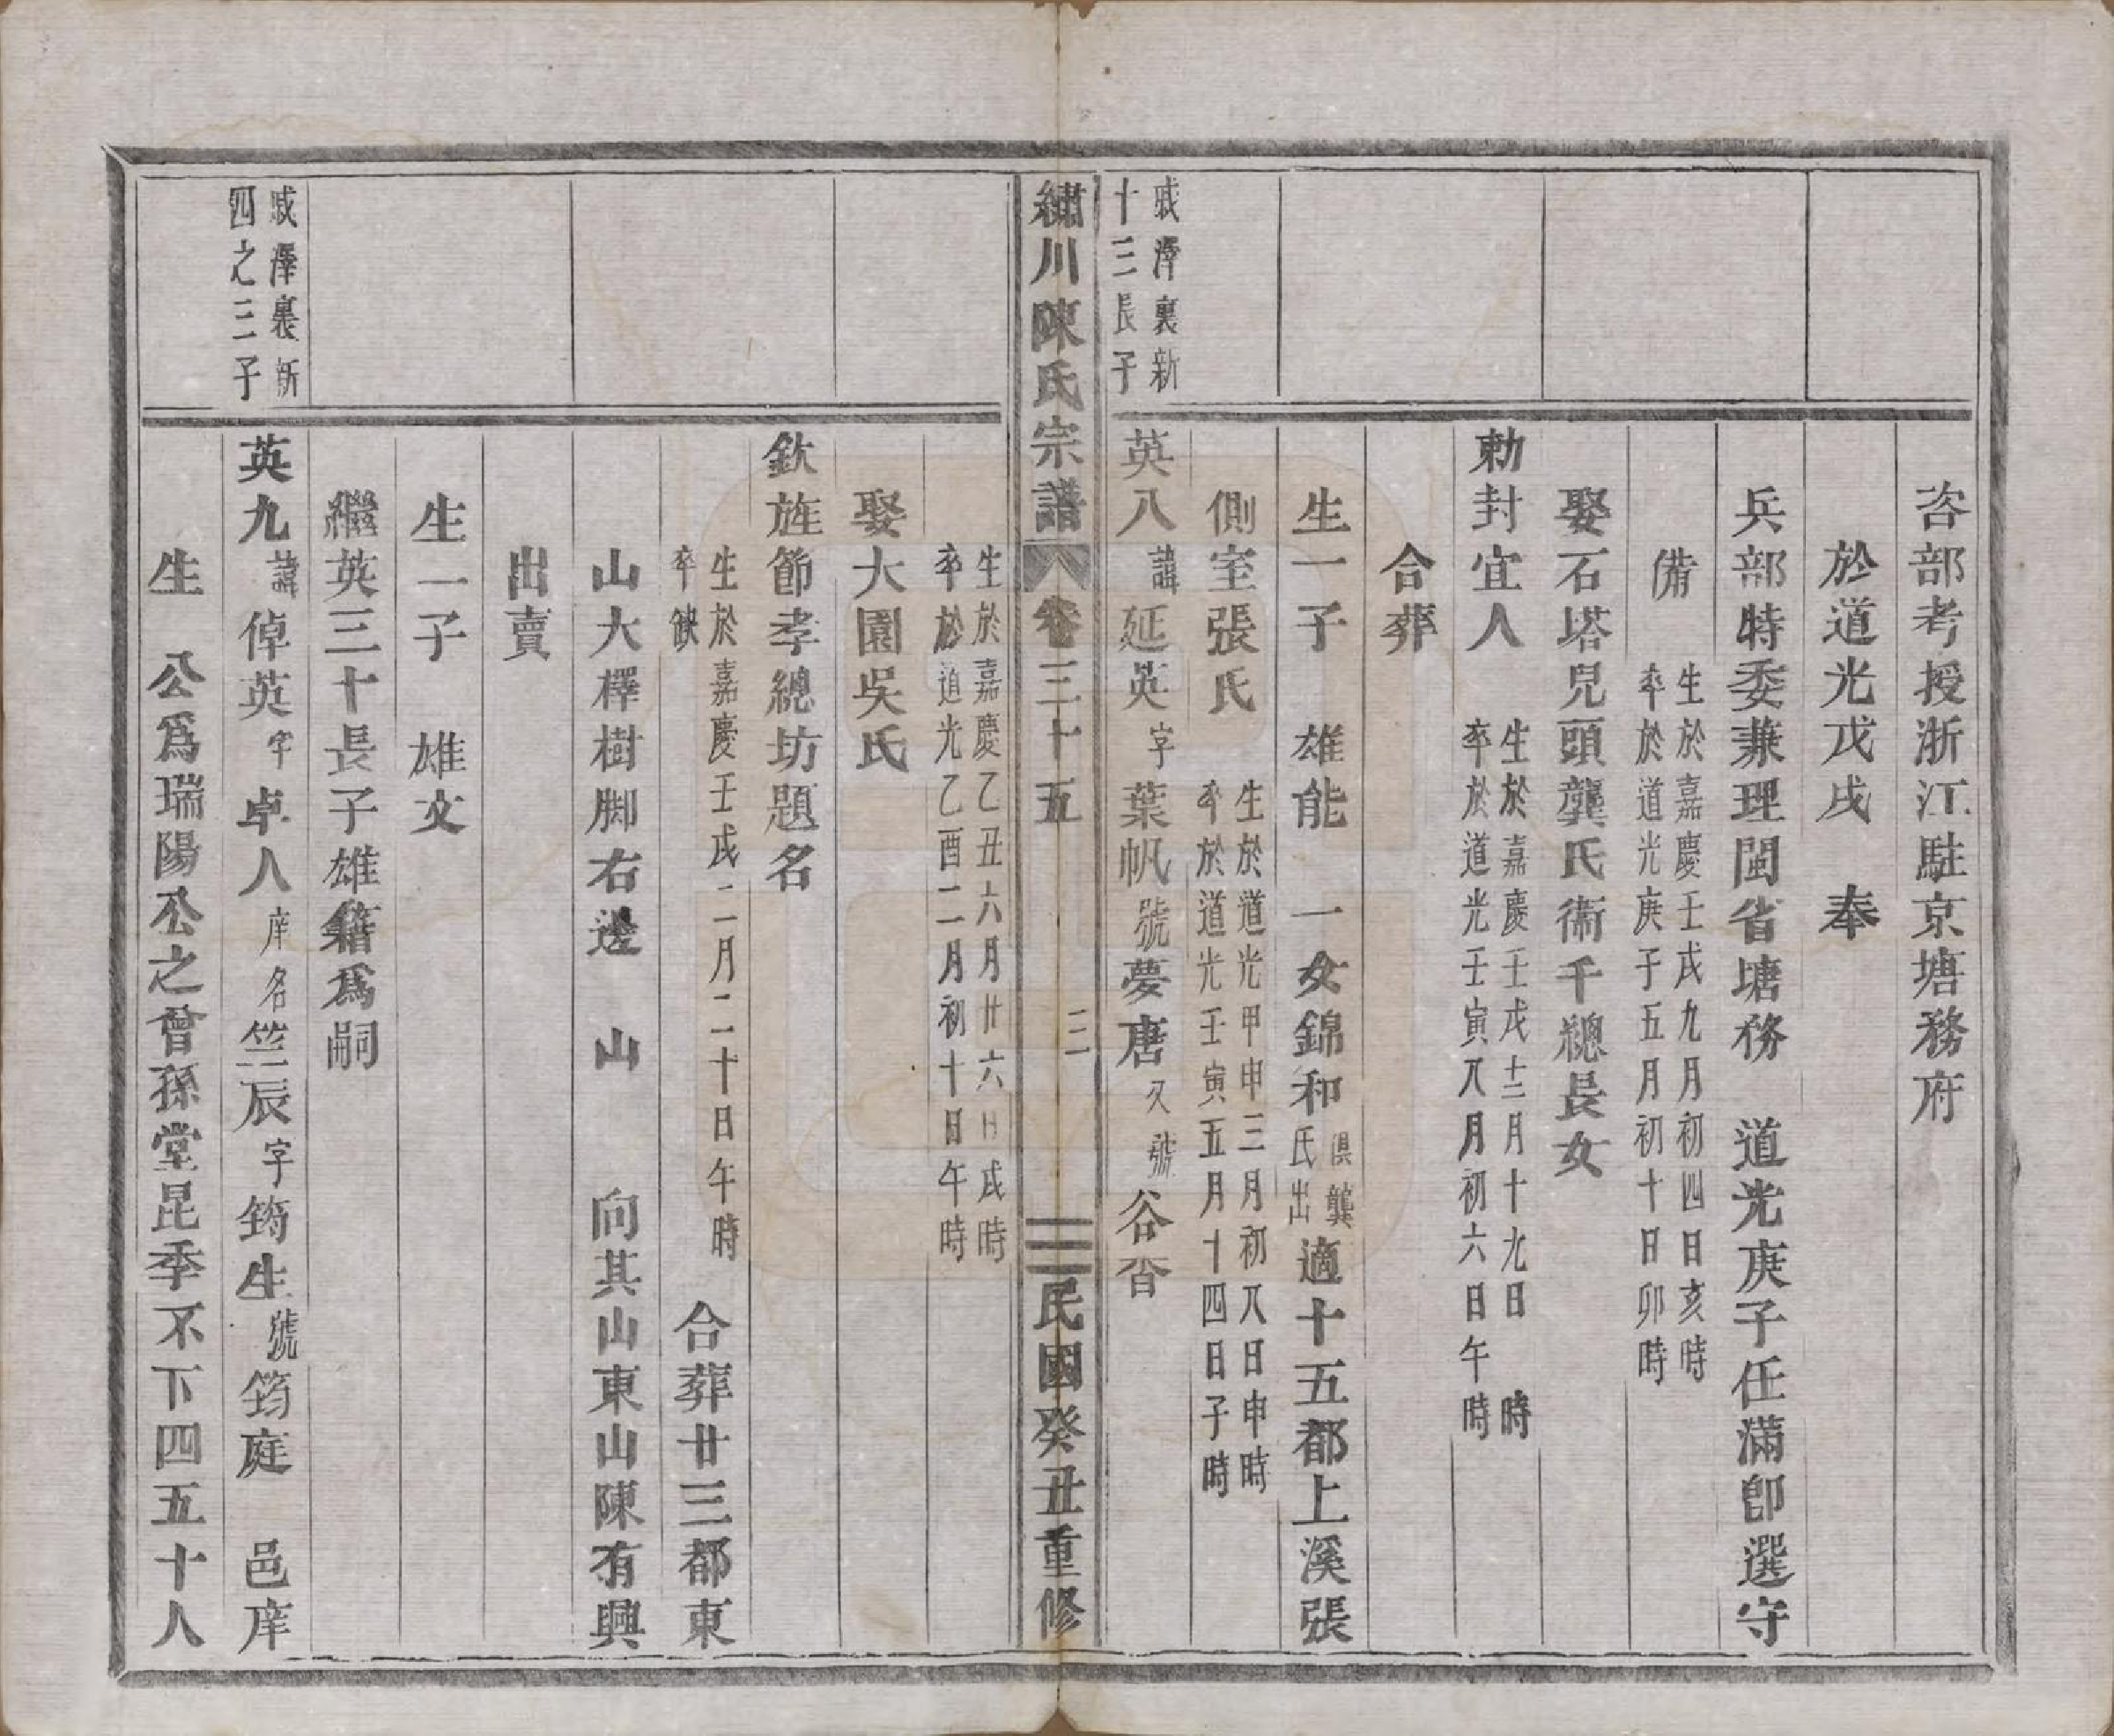 咨部考授浙江駐京塘務府
於道光戊戌 奉
兵部特委兼理閩省塘務 道光庚子任滿卽選守
備 生於嘉慶壬戌九月初四日亥時
卒於道光庚子五月初十日卯時
娶石塔兒頭龔氏衞千總長女
勅封宜人 生於嘉慶壬戌十二月十九日 時
卒於道光壬寅八月初六日午時
合葬
生一子 雄能 一女錦和 俱龔
氏出 適十五都上溪張
側室張氏 生於道光甲申三月初八日申時
卒於道光壬寅五月十四日子時
戚澤裏新
十三長子
英八 諱 延英 字 葉帆 號 夢唐 又號 谷香
繡川陳氏宗譜 卷三十五 三 民國癸丑重修
生於嘉慶乙丑六月廿六日戌時
卒於道光乙酉二月初十日午時
娶大園吳氏
欽旌節孝總坊題名
生於嘉慶壬戌二月二十日午時
卒缺 合葬廿三都東
山大檡樹脚右邊 山 向其山東山陳有興
出賣
生一子 雄文
繼英三十長子雄籍爲嗣
戚澤裏新
四之三子
英九 諱 倬英 字 卓人 庠名 竺辰 字 筠生 號 筠庭 邑庠
生 公爲瑞陽公之曾孫堂昆季不下四五十人